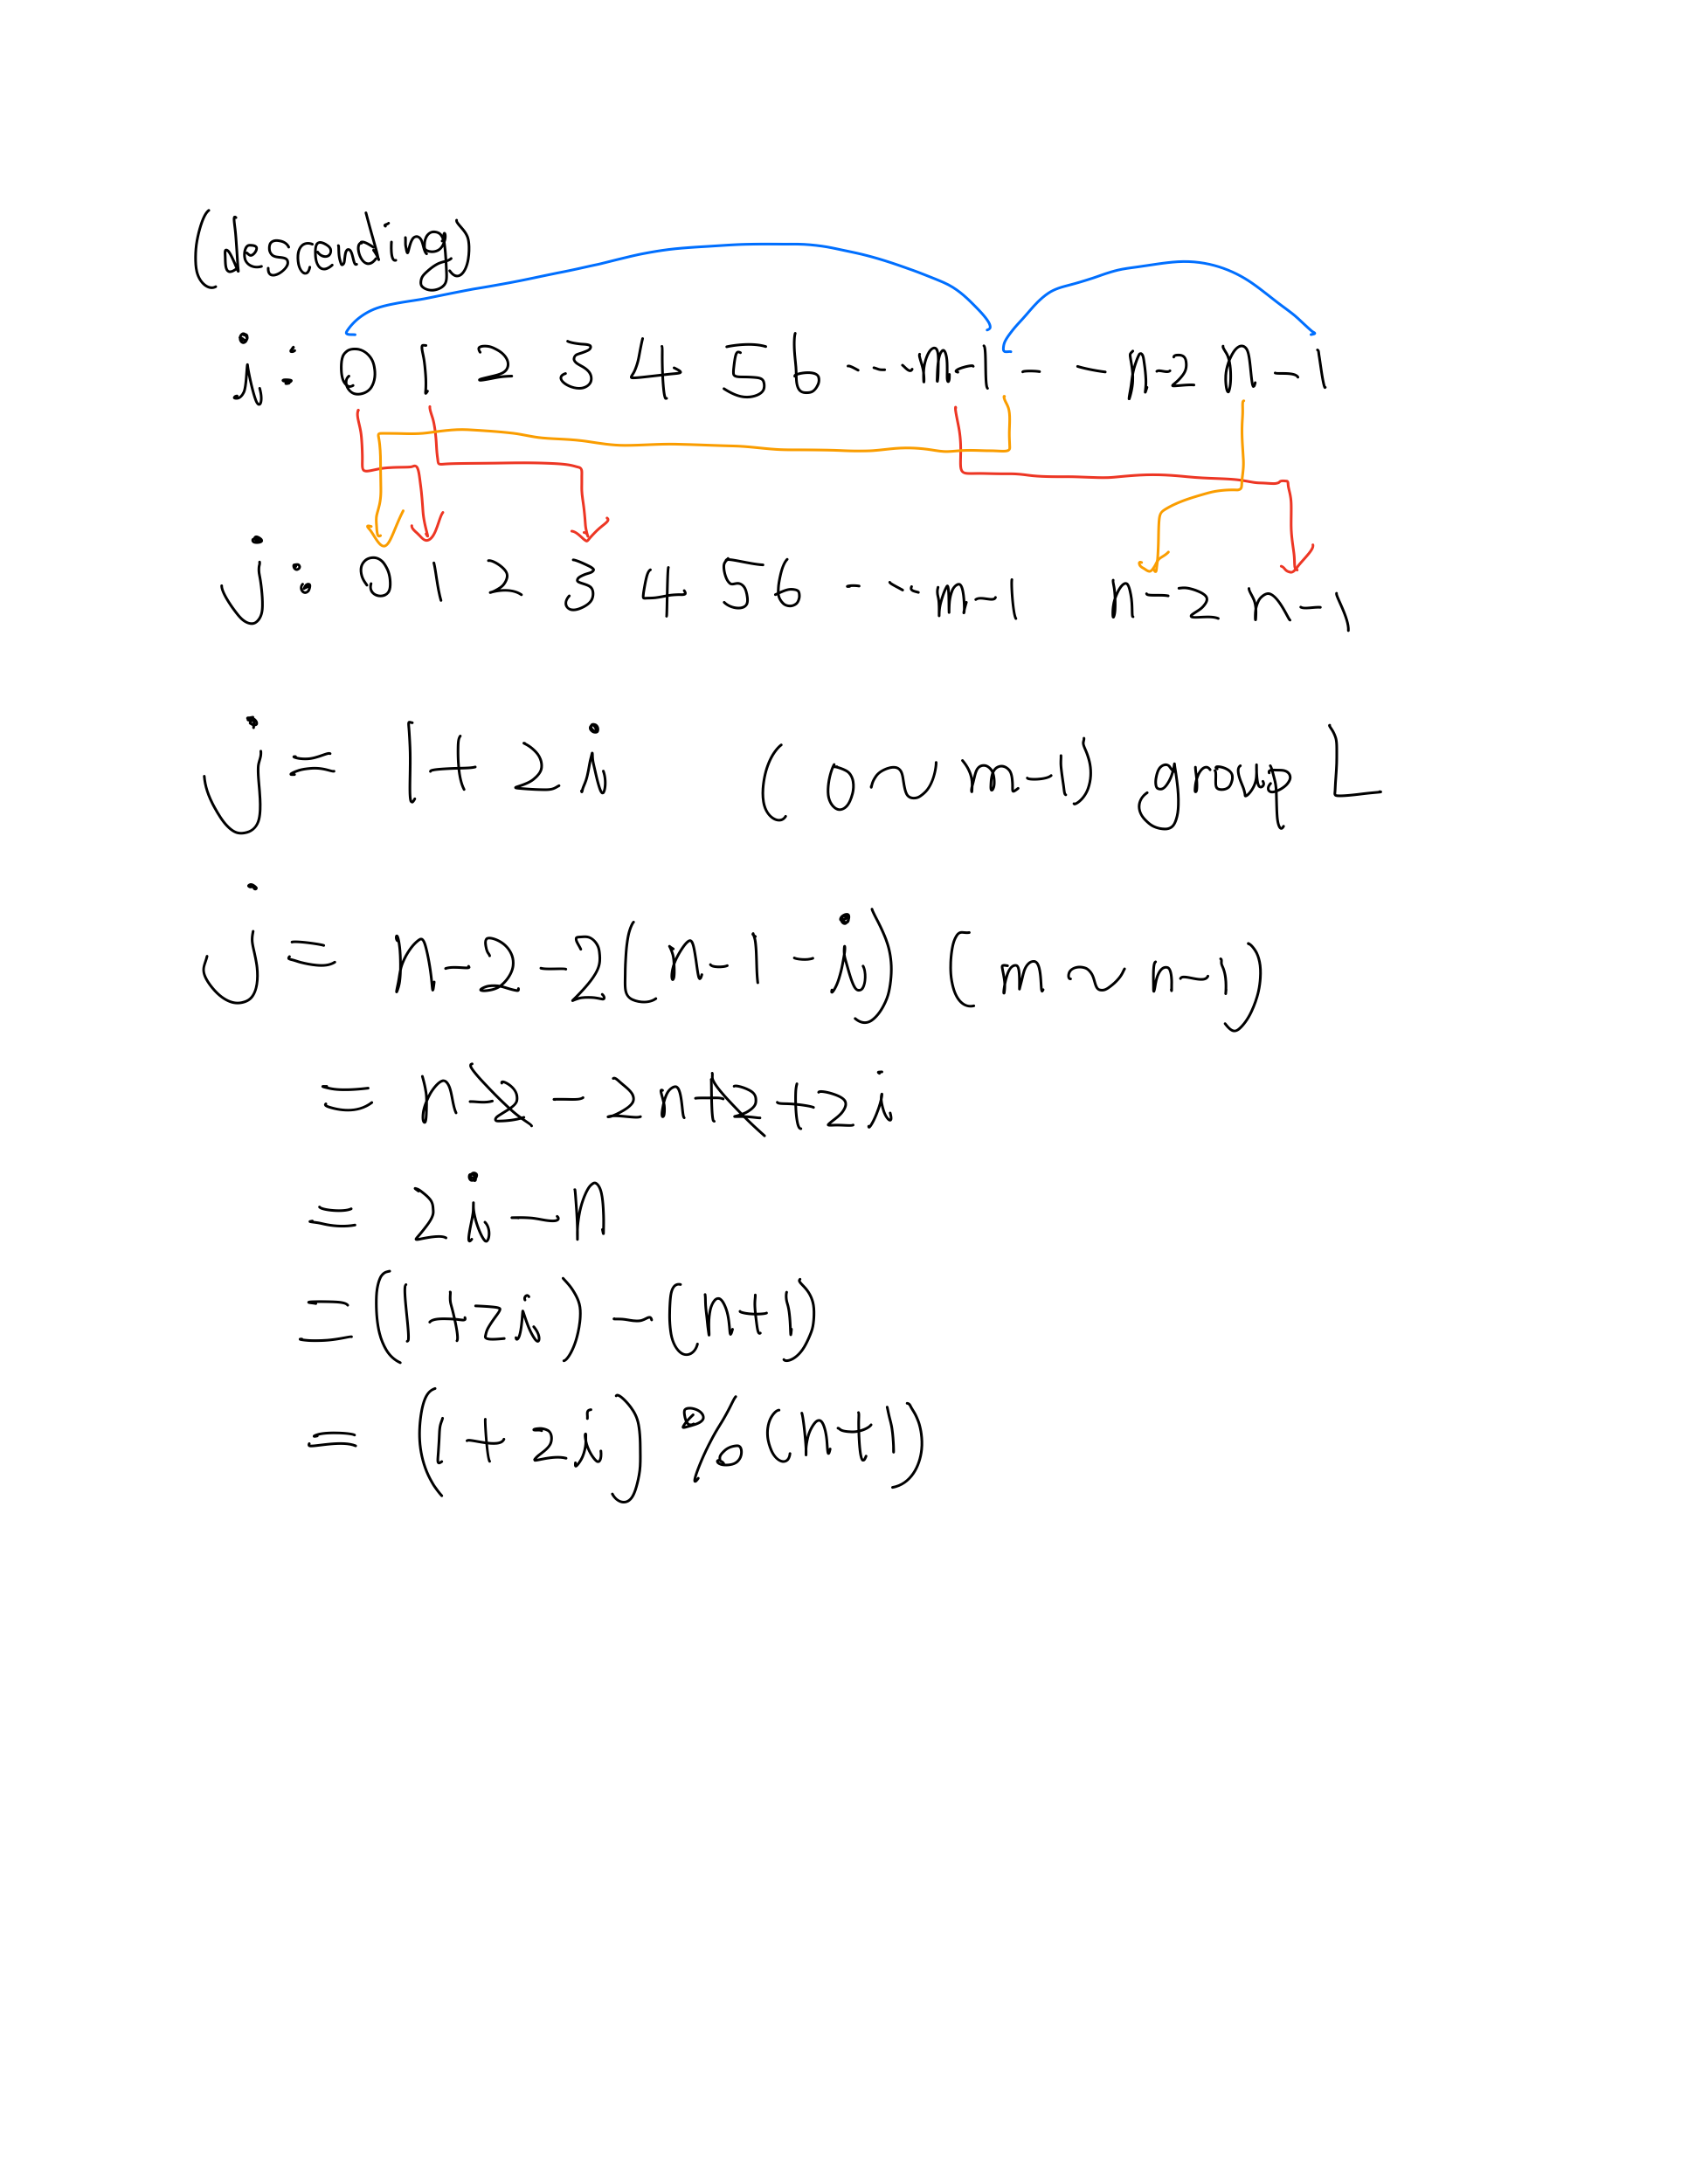 (descending)
i: 0 1 2 3 4 5 6 -- ~m-1 -- n-2 n-1
j: 0 1 2 3 4 5 6 -- -- m-1 n-2 n-1
j = 1 + 2i (0 ~ m-1) group L
j = n-2-2(n-1-i) (m ~ n-1)
= n-2-2n+2+2i
= 2i-n
= (1+2i)-(n+1)
= (1+2i)%(n+1)